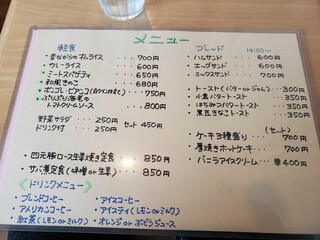 メニュー
軽食
・昔ながらのオムライス 700円
・カレーライス 600円
・ミートスパゲティ 650円
・和風きのこ 680円
・ボンゴレ・ビアンコ 750円
・ぷりぷり海老の
トマトクリームソース 800円
野菜サラダ 250円
ドリンク付 250円 セット 450円
・四元豚ロース生姜焼き定食 850円
・サバ煮定食(味噌or生姜) 850円
<ドリンクメニュー>
・ブレンドコーヒー
・アメリカンコーヒー
・紅茶(レモンorミルク)
・アイスコーヒー
・アイスティ(レモンorミルク)
・オレンジorぶどうジュース
ブレッド 14:00〜
・ハムサンド 600円
・エッグサンド 600円
・ミックスサンド 700円
・トースト(バターorジャム) 300円
・小倉バタートースト 350円
・はちみつバタートースト 350円
・黒豆きなこトースト 350円
(セット)
ケーキ3種盛り 700円
・厚焼きホットケーキ 700円
・バニラアイスクリーム 400円